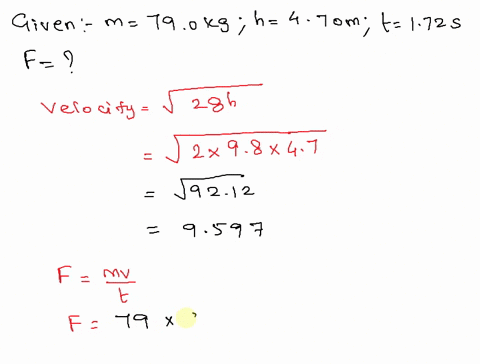 Given:- m = 79.0kg; h = 4.70m; t = 1.72s
F = ?
Velocity = √2gh
= √2 × 9.8 × 4.7
= √92.12
= 9.597
F = mv/t
F = 79 ×